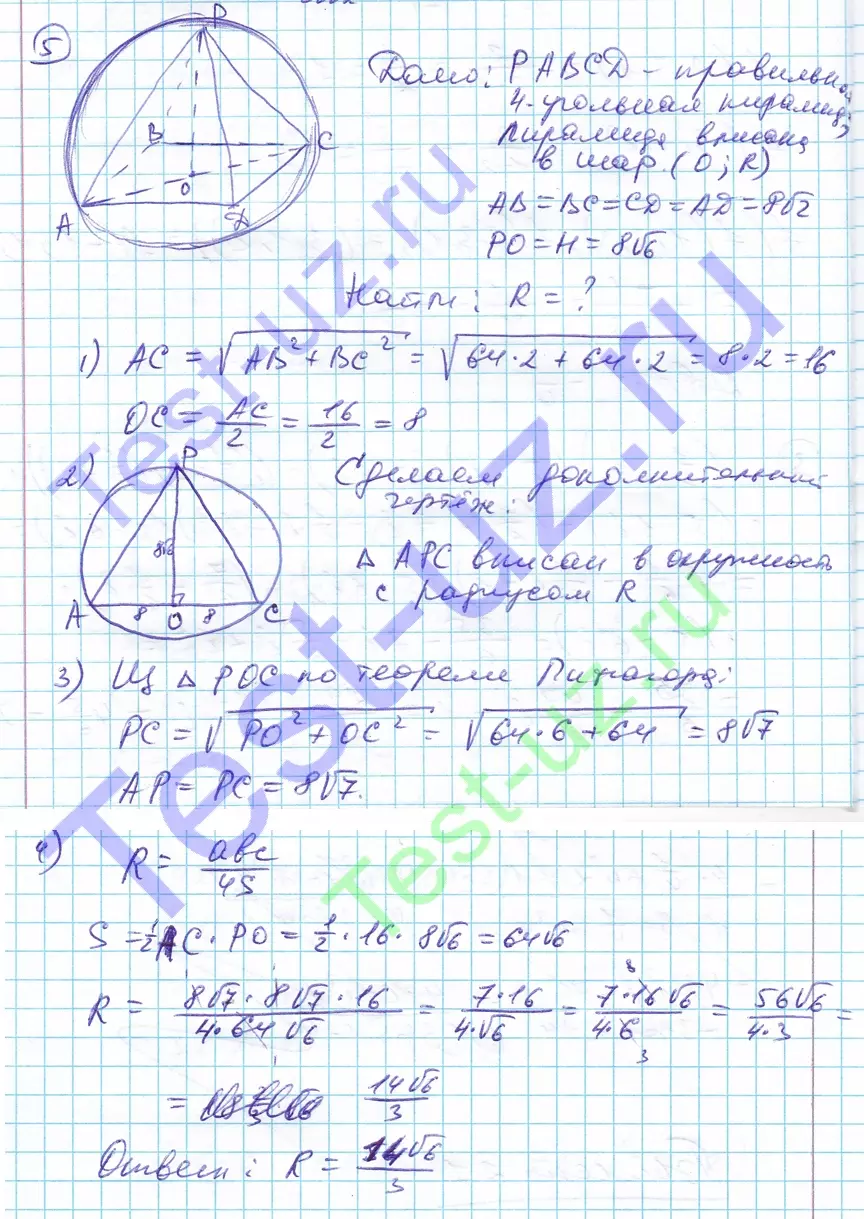 5
P
B
C
O
A
D
Дано: PABCD - правильная
4-угольная пирамида
Пирамида вписана
в шар (O; R)
AB = BC = CD = AD = 8√2
PO = H = 8√6
Найти: R = ?
1) AC = √(AB² + BC²) = √(64·2 + 64·2) = 8·2 = 16
OC = AC/2 = 16/2 = 8
2)
P
8√6
A 8 O 8 C
Сделаем дополнительный
чертёж:
Δ APC вписан в окружность
с радиусом R
3) Из Δ POC по теореме Пифагора:
PC = √(PO² + OC²) = √(64·6 + 64) = 8√7
AP = PC = 8√7.
4) R = abc/4S
S = 1/2 AC · PO = 1/2 · 16 · 8√6 = 64√6
R = (8√7 · 8√7 · 16)/(4·64√6) = (7·16)/(4·√6) = (7·16√6)/(4·6) = 56√6/(4·3) =
= 14√6/3
Ответ: R = 14√6/3
Test-uz.ru
Test-uz.ru
Test-uz.ru